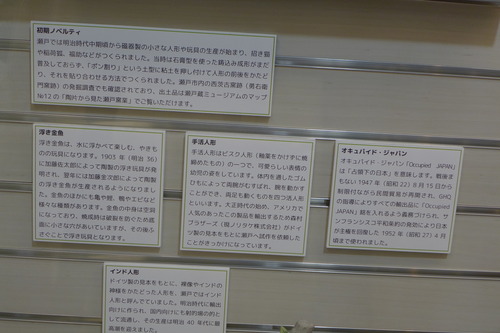 初期ノベルティ
瀬戸では明治時代中期頃から磁器製の小さな人形や玩具の生産が始まり、招き猫
や稲荷狐、福助などがつくられました。当時は石膏型を使った鋳込み成形がまだ
普及しておらず、「ボン割り」という土型に粘土を押し付けて人形の前後をかたど
り、それを貼り合わせる方法でつくられました。瀬戸市内の西茨古窯跡（勇右衛
門窯跡）の発掘調査でも確認されており、出土品は瀬戸蔵ミュージアムのマップ
№12の「陶片から見た瀬戸窯業」でご覧いただけます。
浮き金魚
浮き金魚は、水に浮かべて楽しむ、やきも
のの玩具になります。1903年（明治36）
に加藤佐太郎によって陶製の浮き玩具が発
明され、翌年には加藤金次郎によって陶製
の浮き金魚が生産されるようになりまし
た。金魚のほかにも亀や鯉、鴨やエビなど
様々な種類があります。金魚の中身は空洞
になっており、焼成時は破裂を防ぐため底
面に小さな穴があいていますが、その後ふ
さぐことで浮き玩具となります。
手活人形
手活人形はビスク人形（釉薬をかけずに焼
締めたもの）の一つで、可愛らしい表情の
幼児の姿をしています。体内を通したゴム
ひもによって両腕がむすばれ、腕を動かす
ことができ、両足も動くものを四つ活人形
といいます。大正時代の始め、アメリカで
人気のあったこの製品を輸出するため森村
ブラザーズ（現ノリタケ株式会社）がドイ
ツ製の見本をもとに瀬戸へ試作を依頼した
ことがきっかけになっています。
オキュパイド・ジャパン
オキュパイド・ジャパン「Occupied JAPAN」
は「占領下の日本」を意味します。戦後ま
もない1947年（昭和22）8月15日から
制限付ながら民間貿易が再開され、GHQ
の指導によりすべての輸出品に「Occupied
JAPAN」銘を入れるよう義務づけられ、サ
ンフランシスコ平和条約の発効により日本
が主権を回復した1952年（昭和27）4月
頃まで使われました。
インド人形
ドイツ製の見本をもとに、裸像やインドの
神様をかたどった人形を、瀬戸ではインド
人形と呼んでいました。明治時代に輸出
向けに作られ、国内向けにも射的場の的と
して流通し、その生産は明治40年代に最
高潮を迎えました。